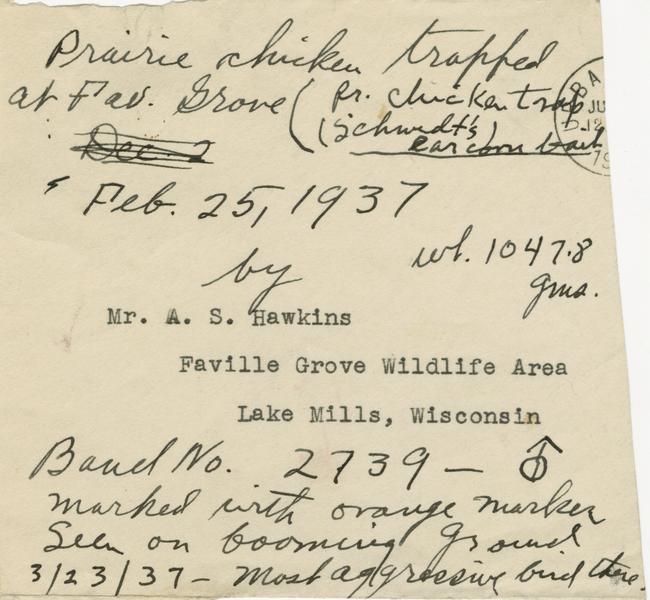 Prairie chicken trapped
at Fav. Grove (Pr. chicken trap
(Schmidt's)
ear corn bait
Dec. 2
Feb. 25, 1937
wt. 1047.8
gms.
by
Mr. A. S. Hawkins
Faville Grove Wildlife Area
Lake Mills, Wisconsin
Band No. 2739 – ♂
marked with orange marker
Seen on booming ground
3/23/37 – Most aggressive bird there.